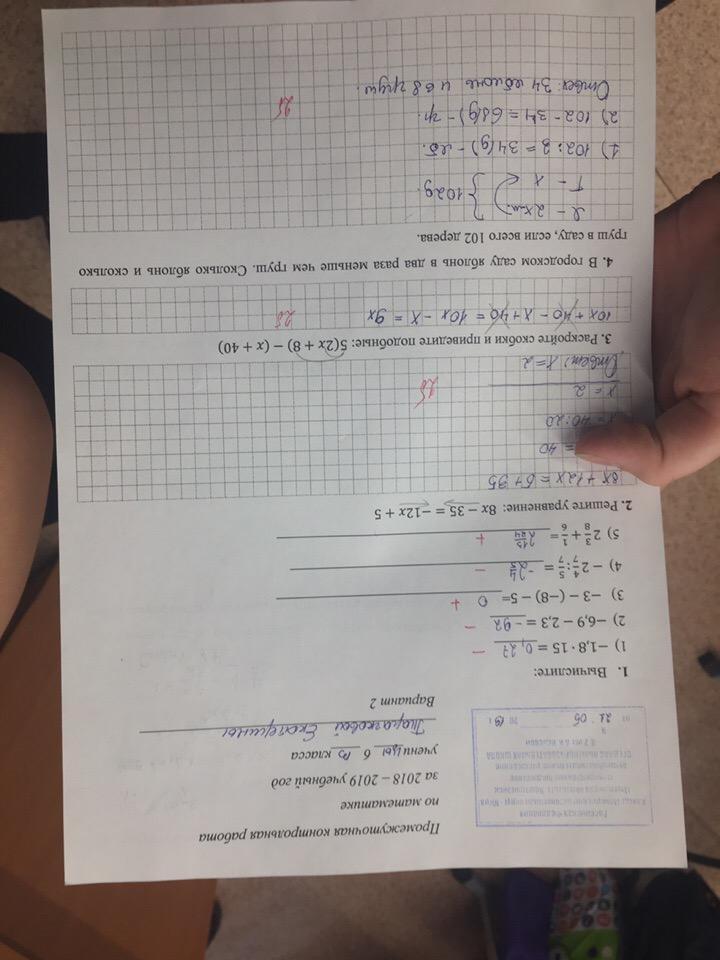 Промежуточная контрольная работа
по математике
за 2018 – 2019 учебный год
учени цы 6 класса
Вариант 2
21 05 20 19 г
1. Вычислите:
1) −1,8 · 15 = 0,27 −
2) −6,9 − 2,3 = −92 −
3) −3 − (−8) − 5= 0 +
4) − 2 4/7 : 5/7 = −2 4/5 −
5) 2 3/8 + 1/6 = 2 13/24 +
2. Решите уравнение: 8x − 35 = −12x + 5
8x + 12x = 5 + 35
= 40
= 40 : 20
x = 2
Ответ: x = 2
2б
3. Раскройте скобки и приведите подобные: 5(2x + 8) − (x + 40)
10x + 40 − x + 40 = 10x − x = 9x
2б
4. В городском саду яблонь в два раза меньше чем груш. Сколько яблонь и сколько
груш в саду, если всего 102 дерева.
Я – 2x м. } 102д.
Г – x
1) 102 : 3 = 34 (д) – яб.
2) 102 − 34 = 68 (д) – гр.
Ответ: 34 яблонь и 68 груш.
2б